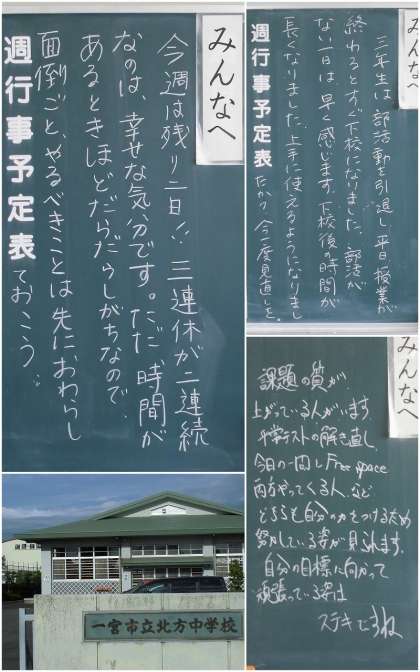 みんなへ
今週は残り二日!! 三連休が二連続
なのは、幸せな気分です。ただ、時間が
あるときほどだらだらしがちなので、
面倒ごと、やるべきことは先におわらし
ておこう。
週行事予定表
みんなへ
三年生は、部活動を引退し、平日授業が
終わるとすぐ下校になりました。部活が
ない一日は、早く感じます。下校後の時間が
長くなりました。上手に使えるようになりまし
たか? 今一度見直しを。
週行事予定表
みんなへ
課題の質が
上がっている人がいます。
テストの解き直し、
今日の一問しFree space
両方やってくる人、など
どちらも自分の力をつけるため
努力している姿が見られます。
自分の目標に向かって
頑張っている姿は
ステキですね
一宮市立北方中学校